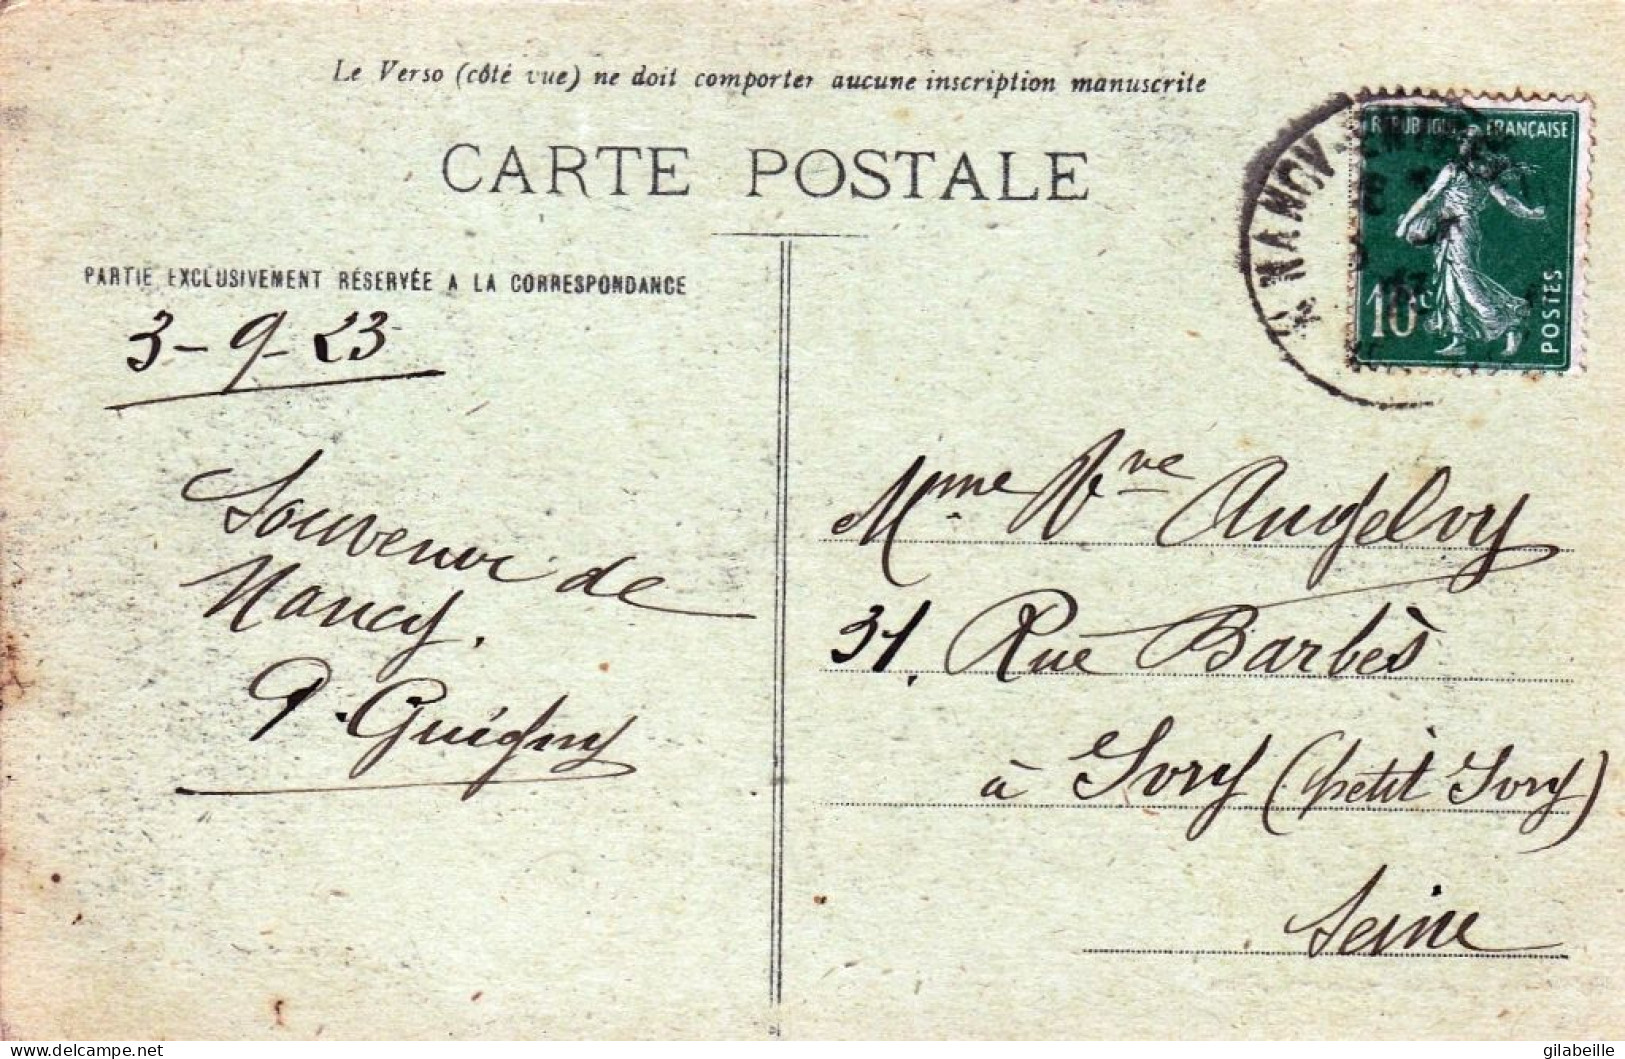 Le Verso (côté vue) ne doit comporter aucune inscription manuscrite
CARTE POSTALE
PARTIE EXCLUSIVEMENT RÉSERVÉE A LA CORRESPONDANCE
3-9-23
Souvenir de
Nancy.
P. Guigny
REPUBLIQUE FRANÇAISE
10c
POSTES
NANCY
Mme Vve Angelvy
31, Rue Barbès
à Ivry (petit Ivry)
Seine
delcampe.net
gilabeille